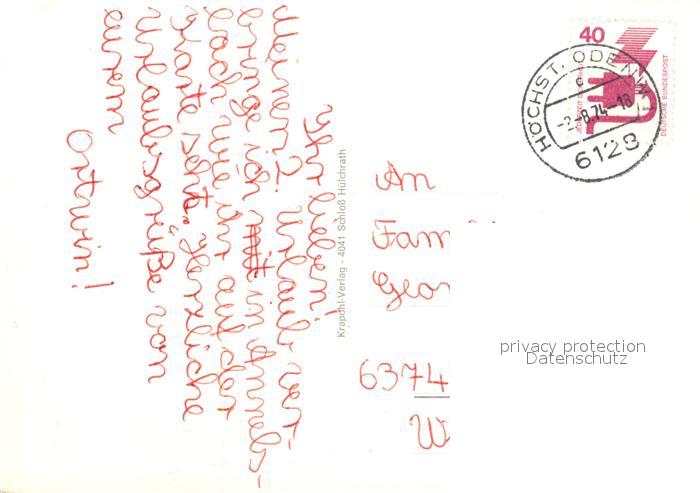 Ihr lieben!
Meinen 2. Urlaub ver-
bringe ich mit in Annels-
bach wie ihr auf der
Karte seht. Herzliche
Urlaubsgrüße von
eurem
Ortwin!
Krapohl-Verlag - 4041 Schloß Hülchrath
An
Fam
Geor
6374
W
40
DEUTSCHE BUNDESPOST
HÖCHST, ODENW
c
-2.-8.74-18
6128
privacy protection
Datenschutz